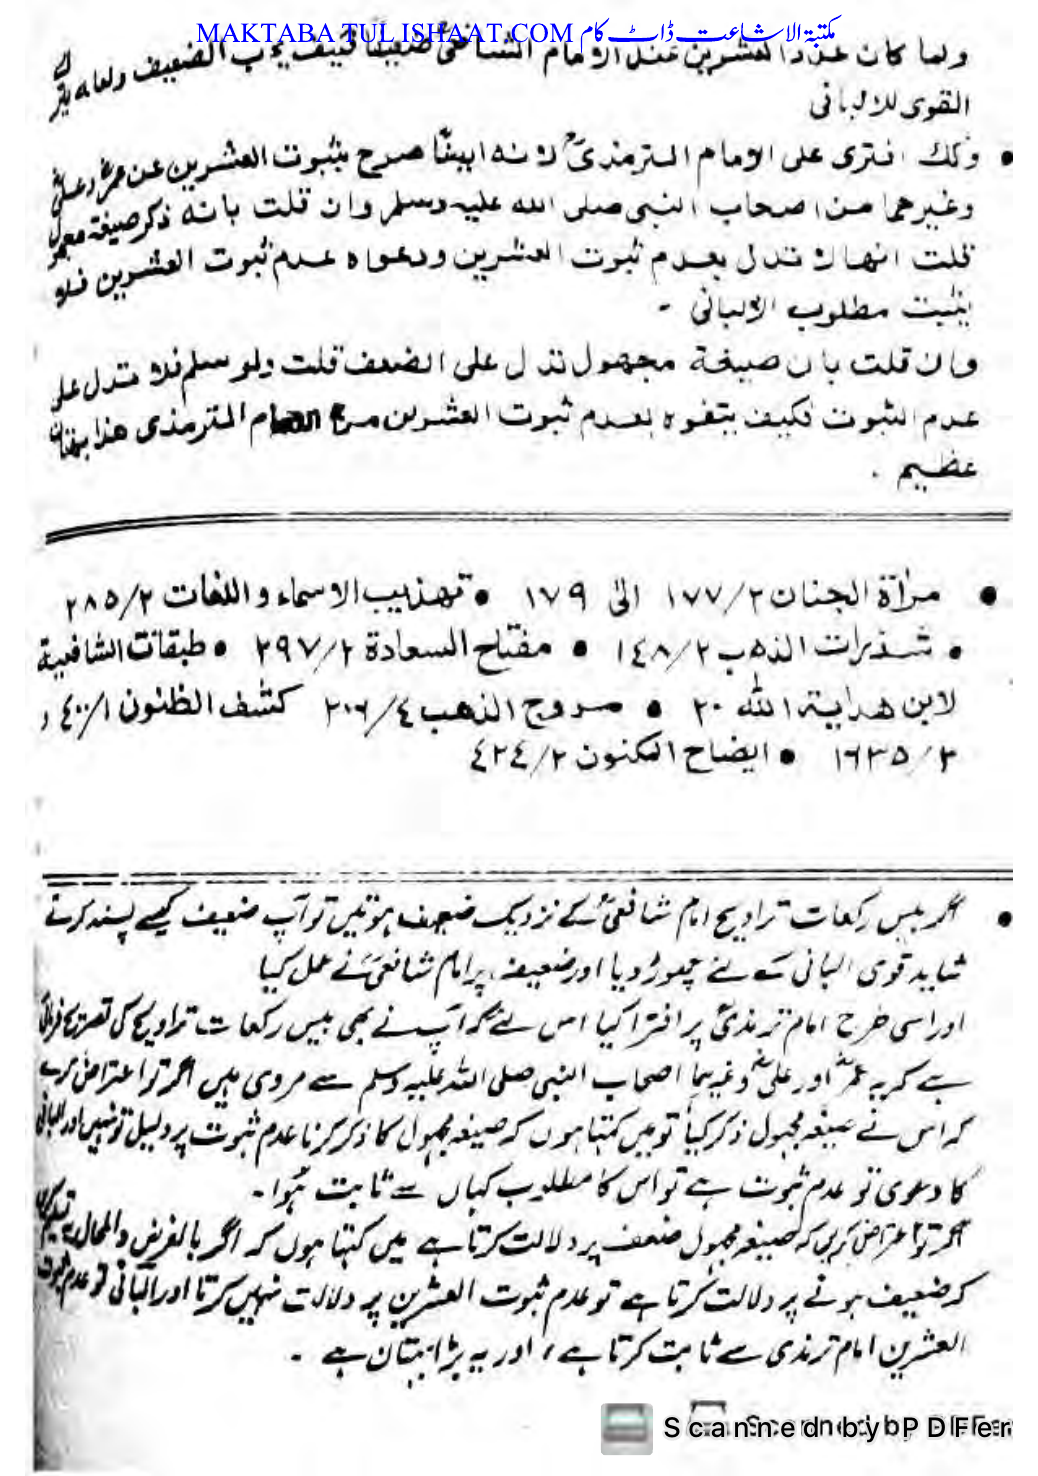 MAKTABA TUL ISHAAT.COM مکتبۃ الاشاعت ڈاٹ کام
ولما كان عدد العشرين عند الامام الشافعیؒ ضعيفا فكيف يحب الضعيف ولعله يترك
القوى للالبانی
● وكذلك افترى على الامام الترمذیؒ لانه ايضًا صرح بثبوت العشرين عن عمرؓ وعلیؓ
وغيرهما من اصحاب النبی صلى الله عليه وسلم وان قلت بانه ذكر صيغة مجهول
قلت انها لا تدل بعدم ثبوت العشرين ودعواه عدم ثبوت العشرين فلا
يثبت مطلوب الالبانی ۔
وان قلت بان صيغة مجهول تدل على الضعف قلت ولو سلم فلا تدل على
عدم الثبوت فكيف يتفوه بعدم ثبوت العشرين من الامام الترمذی هذا بهتان
عظيم .
● مرآة الجنان ٢/١٧٧ الیٰ ١٧٩ ● تهذيب الاسماء واللغات ٢/٢٨٥
● شذرات الذهب ٢/١٤٨ ● مفتاح السعادة ٢/٢٩٧ ● طبقات الشافعية
لابن هداية الله ٢٠ ● مروج الذهب ٤/٢٠٦ كشف الظنون ١/٤٠٠ و
٢/١٦٣٥ ● ايضاح المكنون ٢/٤٢٤
● اگر بیس رکعات تراویح امام شافعیؒ کے نزدیک ضعیف ہوتیں تو آپ ضعیف کیسے پسند کرتے
شاید قوی البانی کے لئے چھوڑ دیا اور ضعیف پر امام شافعیؒ نے عمل کیا
اور اسی طرح امام ترمذیؒ پر افترا کیا اس لئے کہ آپ نے بھی بیس رکعات تراویح کی تصریح فرمائی
ہے کہ یہ عمرؓ اور علیؓ وغیرہما اصحاب النبی صلی اللہ علیہ وسلم سے مروی ہیں اگر تو اعتراض کرے
کہ اس نے صیغہ مجہول ذکر کیا تو میں کہتا ہوں کہ صیغہ مجہول کا ذکر کرنا عدم ثبوت پر دلیل تو نہیں اور البانی
کا دعوی تو عدم ثبوت ہے تو اس کا مطلوب کہاں سے ثابت ہُوا ۔
اگر تو اعتراض کریں کہ صیغہ مجہول ضعف پر دلالت کرتا ہے میں کہتا ہوں کہ اگر بالفرض والمحال یہ تسلیم کریں
کہ ضعیف ہونے پر دلالت کرتا ہے تو عدم ثبوت العشرین پر دلالت نہیں کرتا اور البانی تو عدم ثبوت
العشرین امام ترمذی سے ثابت کرتا ہے، اور یہ بڑا بہتان ہے ۔
Scanned by PDFer